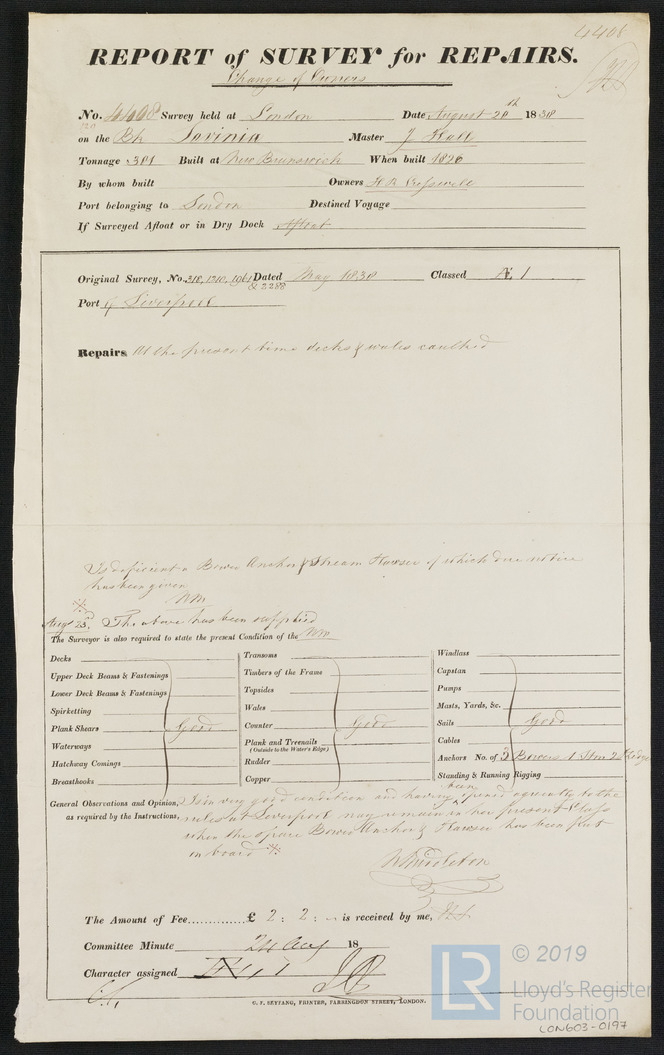 4408
REPORT of SURVEY for REPAIRS.
Change of Owners
No. 4408 Survey held at London Date August 20th 1838
on the Bk Lavinia Master J Hall
Tonnage 301 Built at New Brunswick When built 1826
By whom built Owners
Port belonging to London Destined Voyage
If Surveyed Afloat or in Dry Dock Afloat
Original Survey, No. 318, 1210, 1961 & 2288 Dated May 1838 Classed Æ 1
Port of Liverpool
Repairs At the present time decks & wales caulked
Is deficient a Bower Anchor & Stream Hawser of which due notice
has been given
WM
Augt 23d. The above has been supplied
The Surveyor is also required to state the present Condition of the WM
Decks
Upper Deck Beams & Fastenings
Lower Deck Beams & Fastenings
Spirketting
Plank Shears Good
Waterways
Hatchway Comings
Breasthooks
Transoms
Timbers of the Frame
Topsides
Wales
Counter Good
Plank and Treenails
(Outside to the Water's Edge)
Rudder
Copper
Windlass
Capstan
Pumps
Masts, Yards, &c.
Sails Good
Cables
Anchors No. of 3 Bowers 1 Strm 2 Kedge
Standing & Running Rigging
General Observations and Opinion, Is in very good condition and having been opened agreeably to the
as required by the Instructions, rules at Liverpool may remain in her present Class
when the spare Bower Anchor & Hawser has been put
on board
W Middleton
The Amount of Fee.............. £ 2 : 2 : – is received by me,
Committee Minute 24 Aug 18
Character assigned Æ 1
C. F. SEYFANG, PRINTER, FARRINGDON STREET, LONDON.
LR
© 2019
Lloyd's Register
Foundation
LON603-0197